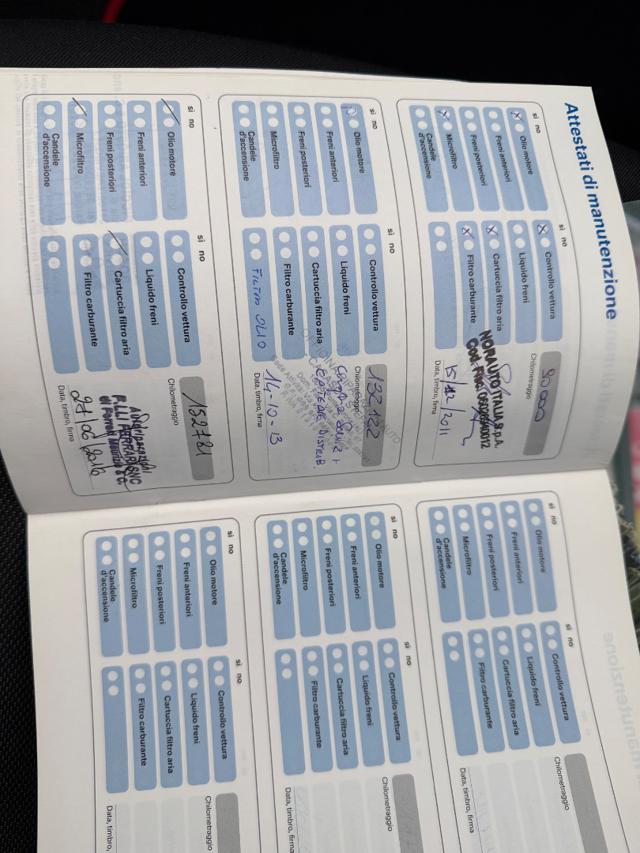 Attestati di manutenzione
si no
Olio motore
Freni anteriori
Freni posteriori
Microfiltro
Candele
d'accensione
si no
Controllo vettura
Liquido freni
Cartuccia filtro aria
Filtro carburante
Chilometraggio
90000
NORAUTO ITALIA S.p.A.
Data, timbro, firma
15/12/2011
si no
Olio motore
Freni anteriori
Freni posteriori
Microfiltro
Candele
d'accensione
si no
Controllo vettura
Liquido freni
Cartuccia filtro aria
Filtro carburante
FILTRO OLIO
Chilometraggio
132122
Data, timbro, firma
14-10-13
si no
Olio motore
Freni anteriori
Freni posteriori
Microfiltro
Candele
d'accensione
si no
Controllo vettura
Liquido freni
Cartuccia filtro aria
Filtro carburante
Chilometraggio
152721
Data, timbro, firma
si no
Olio motore
Freni anteriori
Freni posteriori
Microfiltro
Candele
d'accensione
si no
Controllo vettura
Liquido freni
Cartuccia filtro aria
Filtro carburante
Chilometraggio
Data, timbro, firma
si no
Olio motore
Freni anteriori
Freni posteriori
Microfiltro
Candele
d'accensione
si no
Controllo vettura
Liquido freni
Cartuccia filtro aria
Filtro carburante
Chilometraggio
Data, timbro, firma
si no
Olio motore
Freni anteriori
Freni posteriori
Microfiltro
Candele
d'accensione
si no
Controllo vettura
Liquido freni
Cartuccia filtro aria
Filtro carburante
Chilometraggio
Data, timbro,